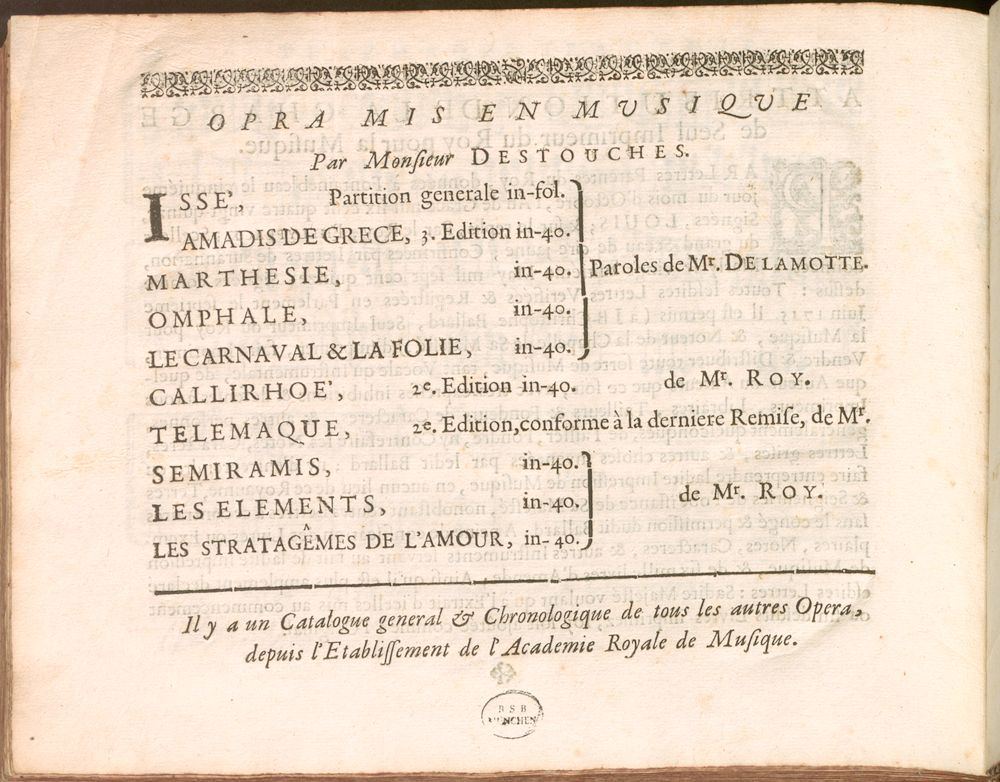 OPRA MIS EN MUSIQUE
Par Monſieur DESTOUCHES.
ISSE, Partition generale in-fol.
AMADIS DE GRECE, 3. Edition in-40.
MARTHESIE, in-40. Paroles de Mr. DE LAMOTTE.
OMPHALE, in-40.
LE CARNAVAL & LA FOLIE, in-40.
CALLIRHOE', 2e. Edition in-40. de Mr. ROY.
TELEMAQUE, 2e. Edition, conforme à la derniere Remiſe, de Mr.
SEMIRAMIS, in-40.
LES ELEMENTS, in-40. de Mr. ROY.
LES STRATAGÊMES DE L'AMOUR, in-40.
Il y a un Catalogue general & Chronologique de tous les autres Opera,
depuis l'Etabliſſement de l'Academie Royale de Muſique.
BSB
MÜNCHEN